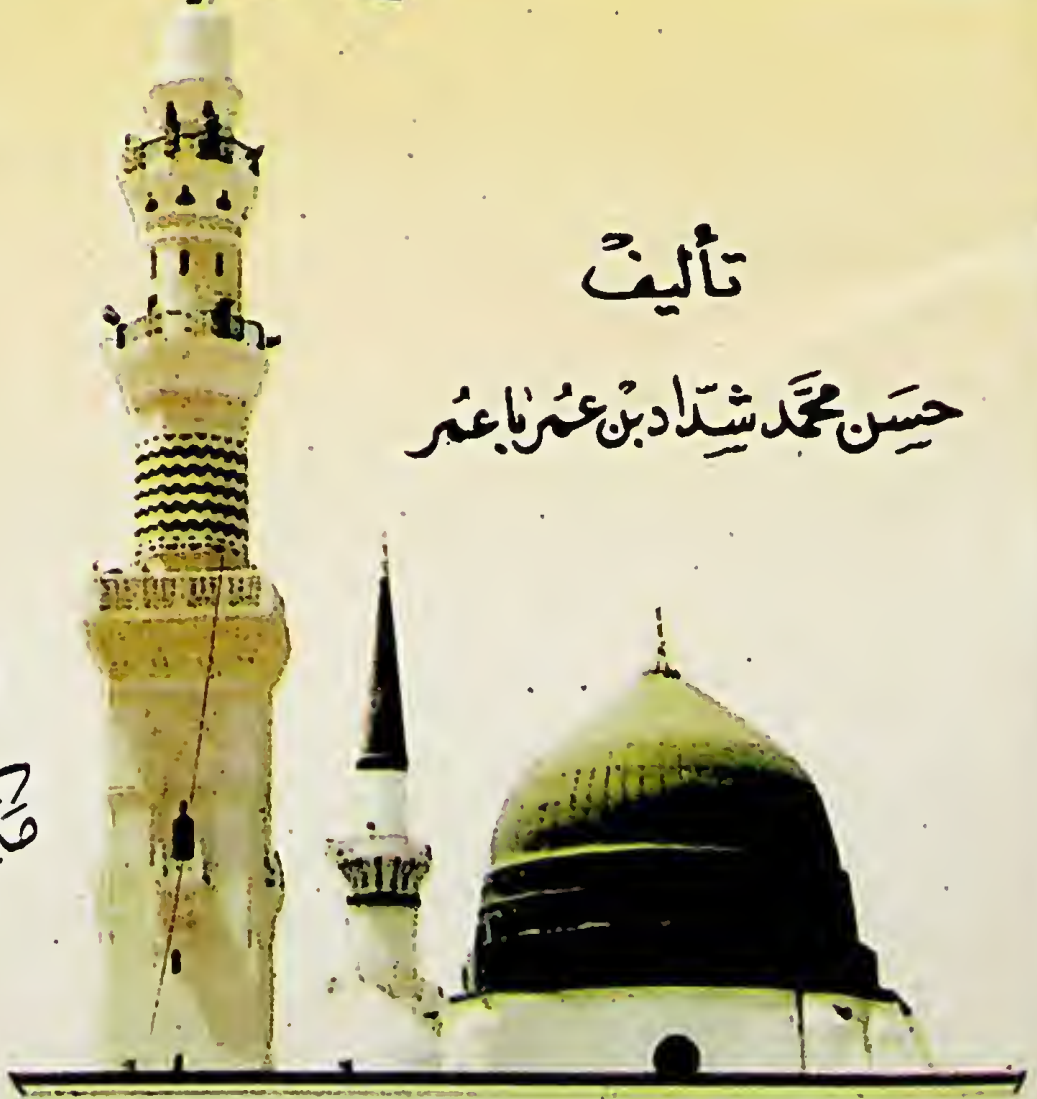 تأليف
حسَن محمَّد شدَّاد بن عُمر باعُمر